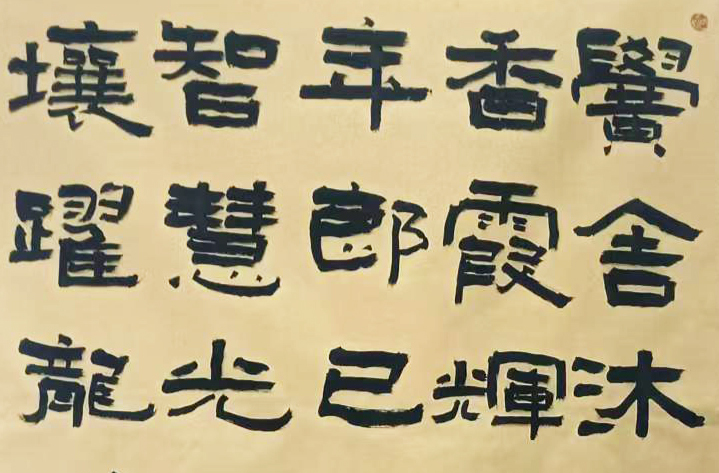 黌舍沐
香霞輝
年郎已
智慧光
壤躍龍